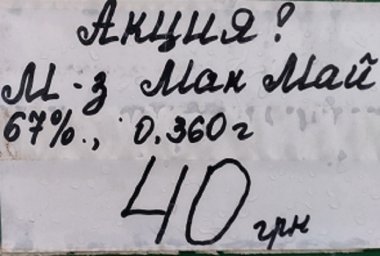 Акция!
М-з Мак Май
67%., 0.360г
40 грн